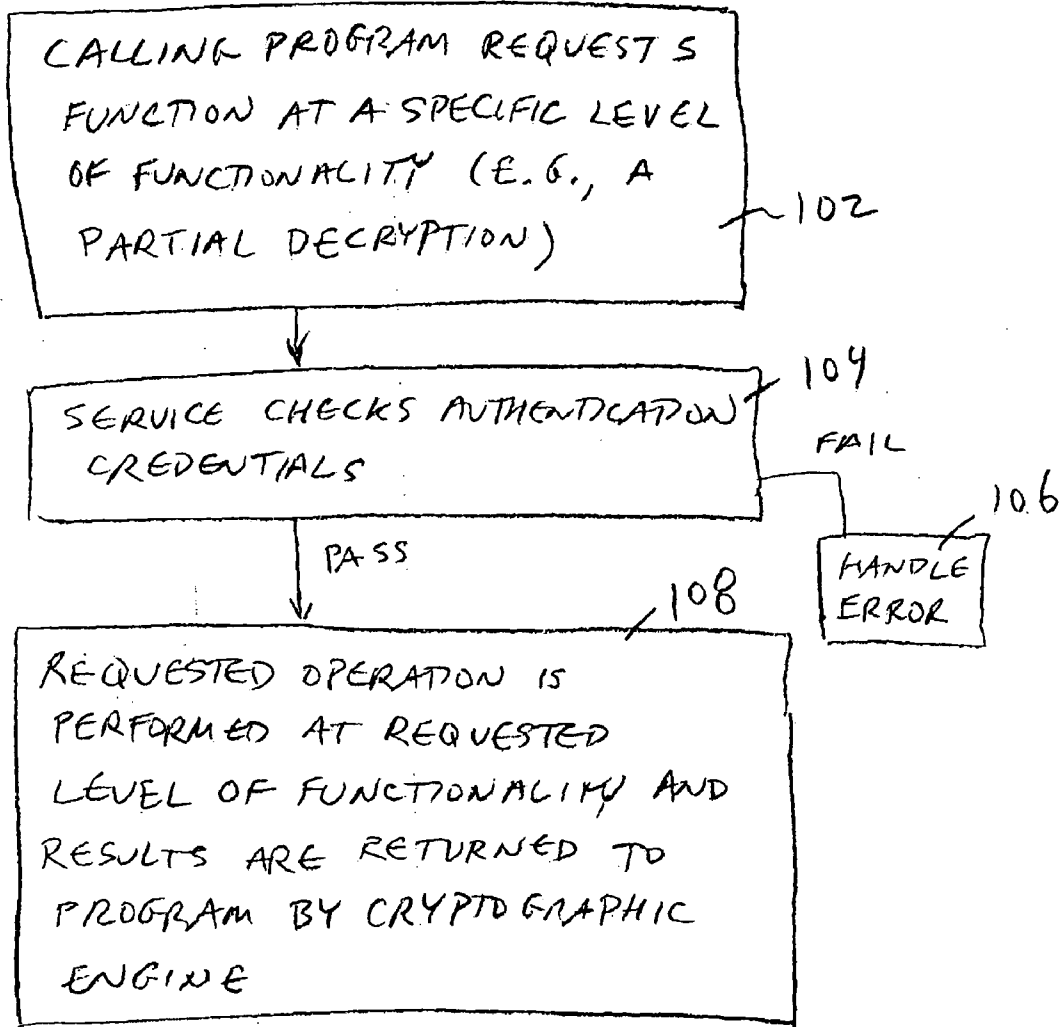 CALLING PROGRAM REQUESTS
FUNCTION AT A SPECIFIC LEVEL
OF FUNCTIONALITY (E.G., A
PARTIAL DECRYPTION)
102
SERVICE CHECKS AUTHENTICATION
CREDENTIALS
104
FAIL
106
HANDLE
ERROR
PASS
108
REQUESTED OPERATION IS
PERFORMED AT REQUESTED
LEVEL OF FUNCTIONALITY AND
RESULTS ARE RETURNED TO
PROGRAM BY CRYPTOGRAPHIC
ENGINE